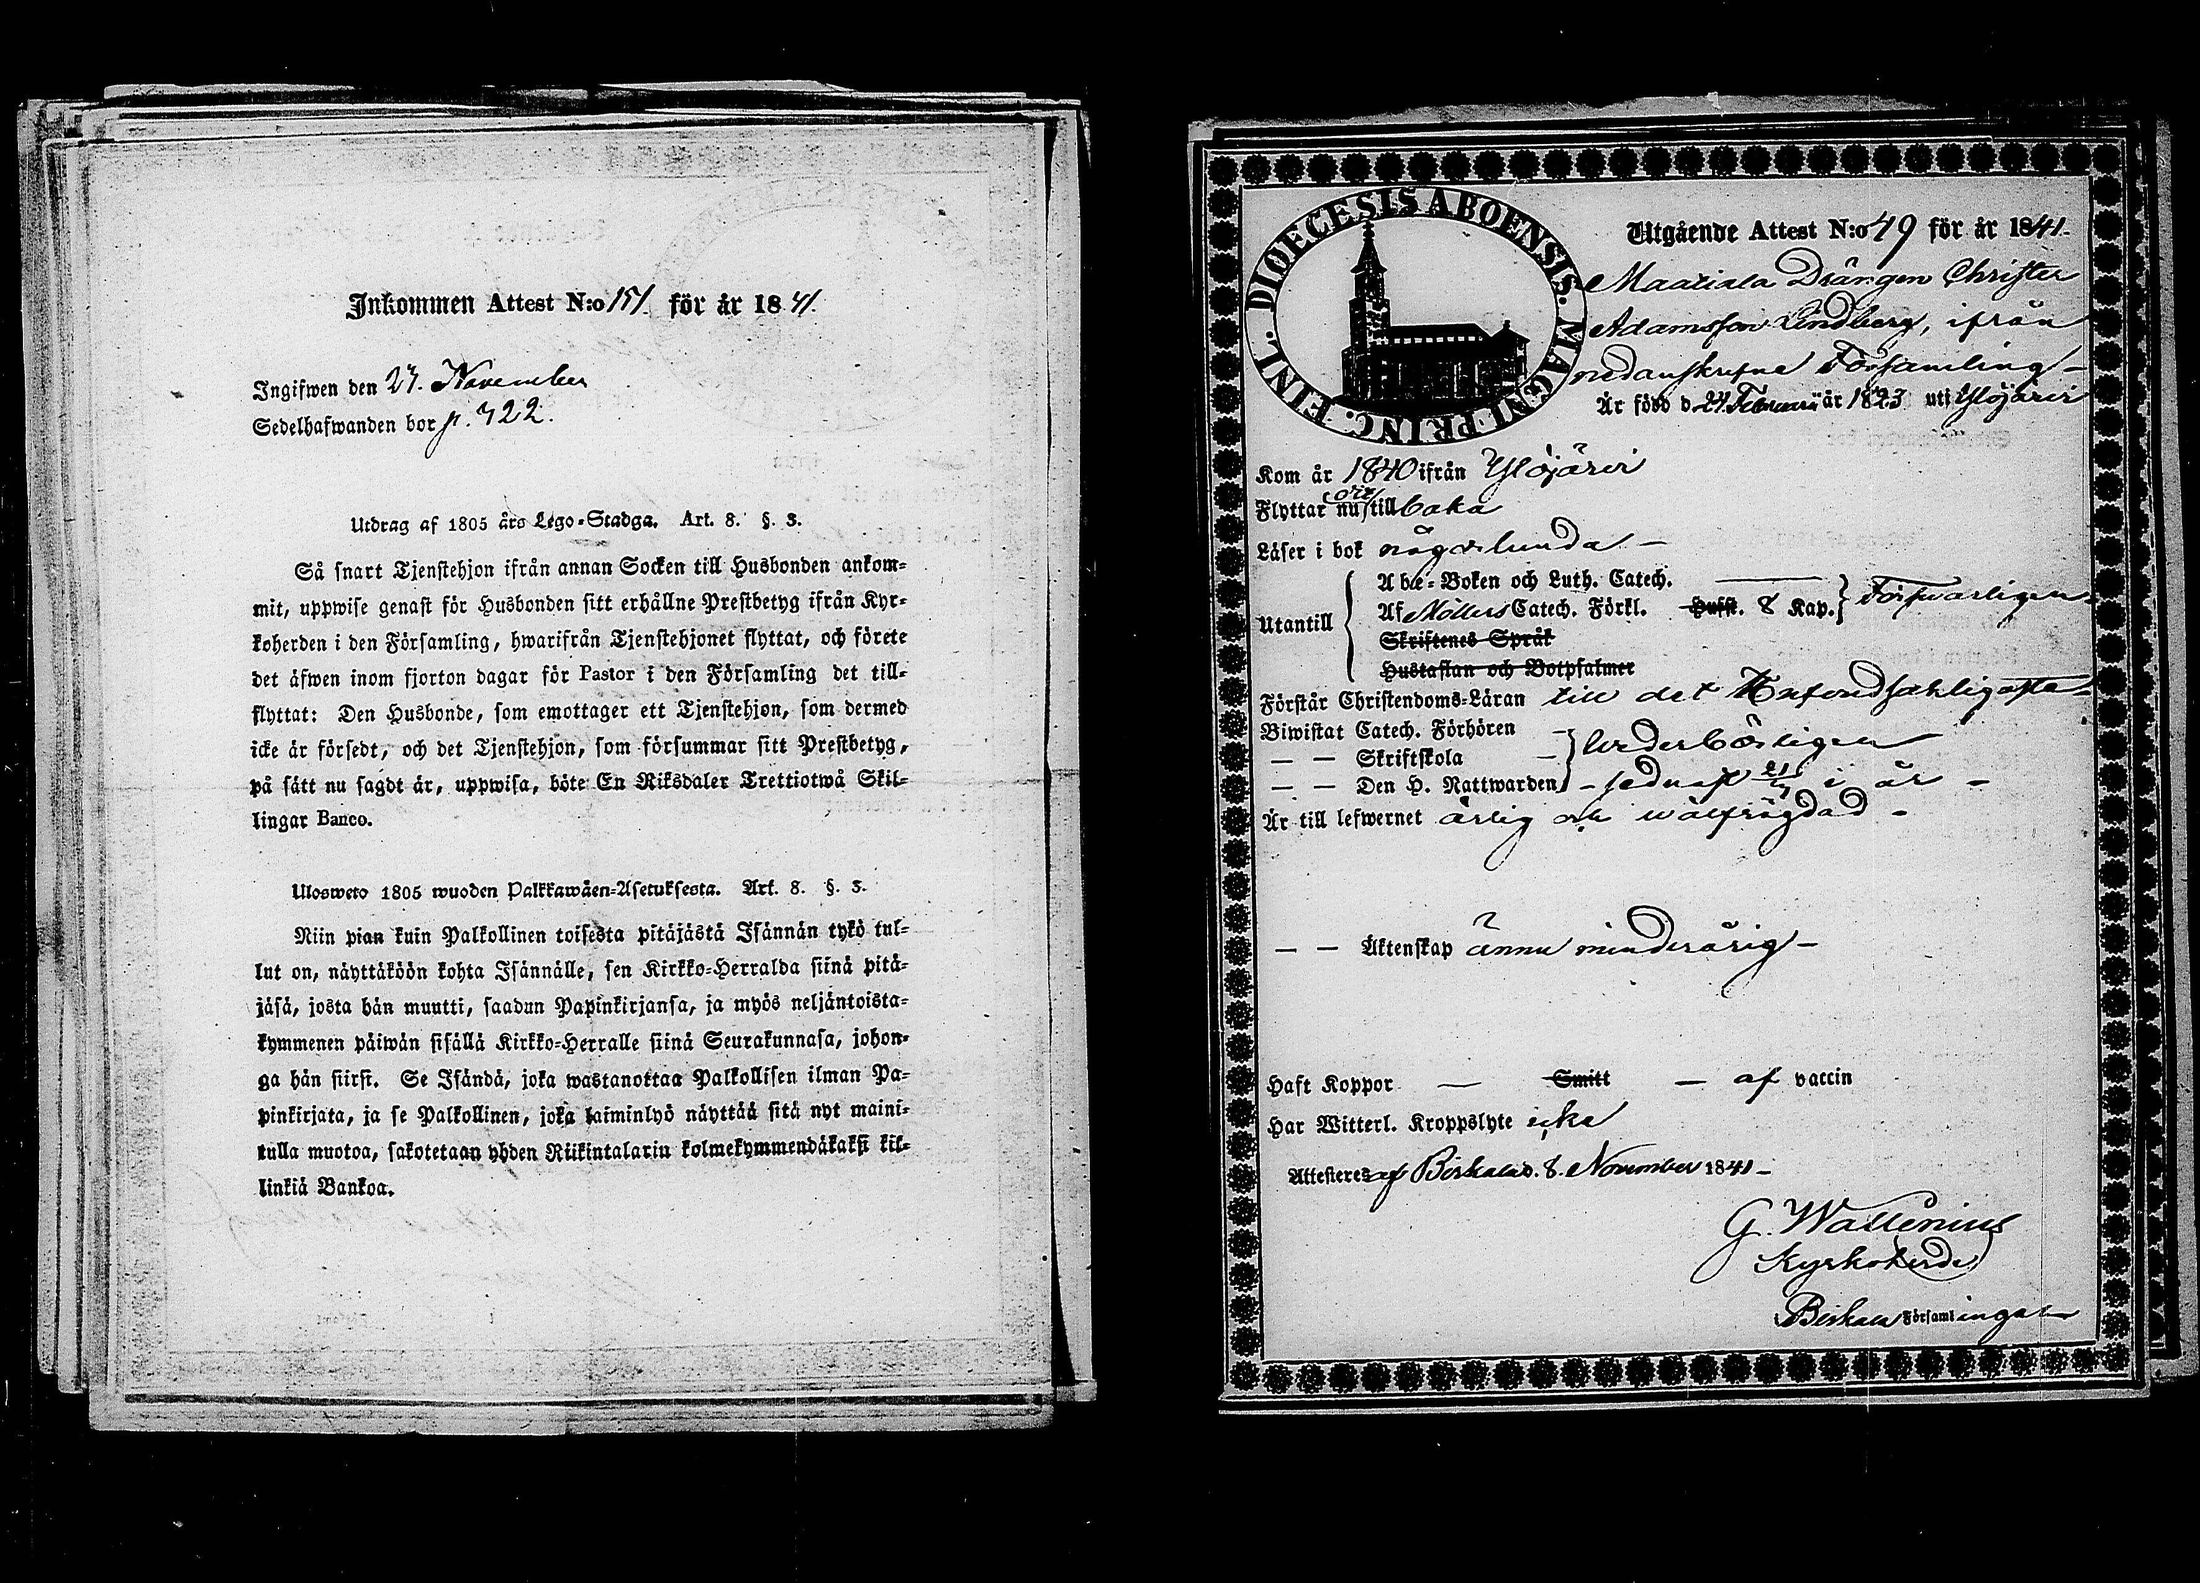 Inkommen Attest N:o 151 för år 1841.
Ingifwen den 27. November
Sedelhafwanden bor p. 722.
Utdrag af 1805 års Lego-Stadga. Art. 8. §. 3.
Så snart Tjenstehjon ifrån annan Socken till Husbonden ankom-
mit, uppwise genast för Husbonden sitt erhållne Prestbetyg ifrån Kyr-
koherden i den Församling, hwarifrån Tjenstehjonet flyttat, och förete
det äfwen inom fjorton dagar för Pastor i den Församling det till-
flyttat: Den Husbonde, som emottager ett Tjenstehjon, som dermed
icke är försedt, och det Tjenstehjon, som försummar sitt Prestbetyg,
på sätt nu sagdt är, uppwisa, böte En Riksdaler Trettiotwå Skil-
lingar Banco.
Ulosweto 1805 wuoden Palkkawäen-Asetuksesta. Art. 8. §. 3.
Niin pian kuin Palkollinen toisesta pitäjästä Isännän tykö tul-
lut on, näyttäköön kohta Isännälle, sen Kirkko-Herralda siinä pitä-
jäsä, josta hän muutti, saadun Papinkirjansa, ja myös neljäntoista-
kymmenen päiwän sisällä Kirkko-Herralle siinä Seurakunnasa, johon-
ga hän siirsi. Se Isändä, joka wastanottaa Palkollisen ilman Pa-
pinkirjata, ja se Palkollinen, joka laiminlyö näyttää sitä nyt maini-
tulla muotoa, sakotetaan yhden Riikintalarin kolmekymmendäkaksi kil-
linkiä Bankoa.
DIOECESIS ABOENSIS. MAGNI PRINC. FINL.
Utgående Attest N:o 49 för år 1841.
Maatiala Drängen Christer
Adamsson Lindberg, ifrån
nedanskrefne Församling
Är född d. 24 Februarii år 1823 uti Ylöjärvi
Kom år 1840 ifrån Ylöjärvi
Flyttar nu till baka
Läser i bok någorlunda
Utantill
Abc-Boken och Luth. Catech.
Af Möllers Catech. Förkl. Hufst. 8 Kap. Förswarligen
Skriftenes Språk
Hustaflan och Botpsalmer
Förstår Christendoms-Läran till det
Biwistat Catech. Förhören
— — Skriftskola wederbörligen
— — Den H. Nattwarden sednast 21/7 i år
Är till lefwernet ärlig och wälfrägdad
— — Äktenskap ännu minderårig
Haft Koppor — Smitt — af vaccin
Har Witterl. Kroppslyte icke
Attesteres af Birkala d. 8. November 1841
G. Wallenius
Kyrkoherde
Birkala Församlingar